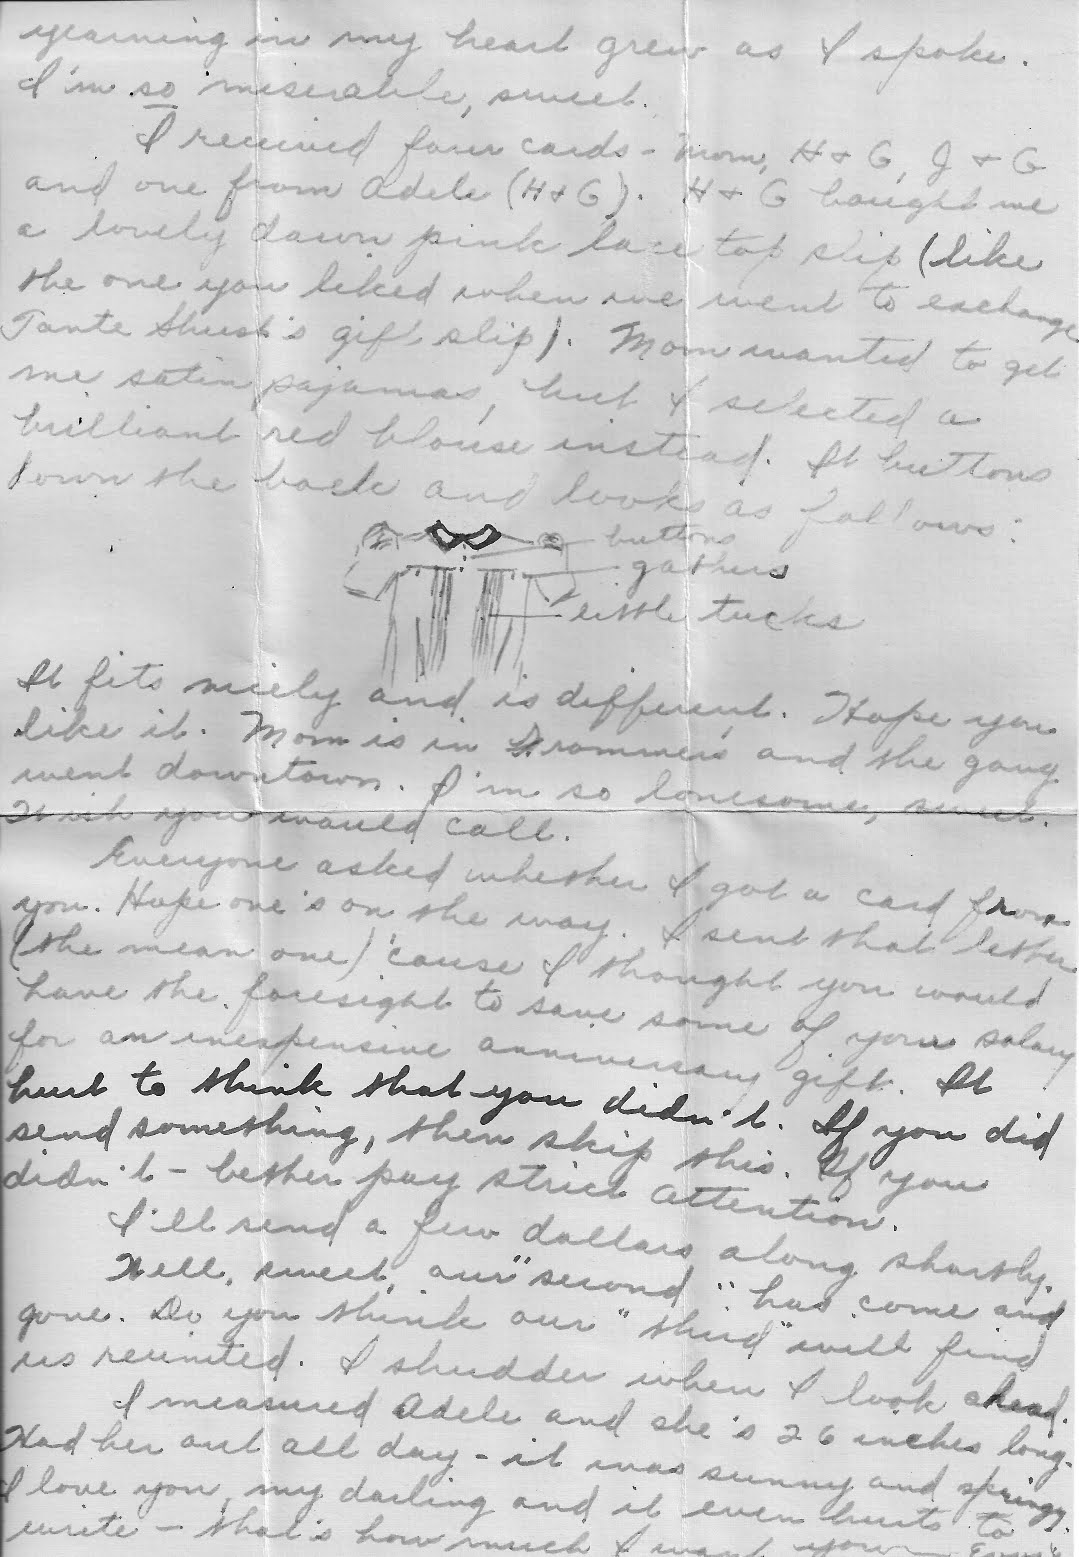 yearning in my heart grew as I spoke.
I'm so miserable, sweet.
I received four cards - Mom, H + G, J + G
and one from Adele (H+G). H + G bought me
a lovely dawn pink lace top slip (like
the one you liked when we went to exchange
Tante gift slip). Mom wanted to get
me satin pajamas, but I selected a
brilliant red blouse instead. It buttons
down the back and looks as follows:
buttons
gathers
little tucks
It fits nicely and is different. Hope you
like it. Mom is in and the gang
went downtown. I'm so lonesome, sweet.
Wish you would call.
Everyone asked whether I got a card from
you. Hope one's on the way. I sent that letter
(the mean one) 'cause I thought you would
have the foresight to save some of your salary
for an inexpensive anniversary gift. It
hurt to think that you didn't. If you did
send something, then skip this. If you
didn't - better pay strict attention.
I'll send a few dollars along shortly.
Well, sweet, our "second" has come and
gone. Do you think our "third" will find
us reunited. I shudder when I look ahead.
I measured Adele and she's 26 inches long.
Had her out all day - it was sunny and springy.
I love you, my darling and it even hurts to
write - that's how much I want you